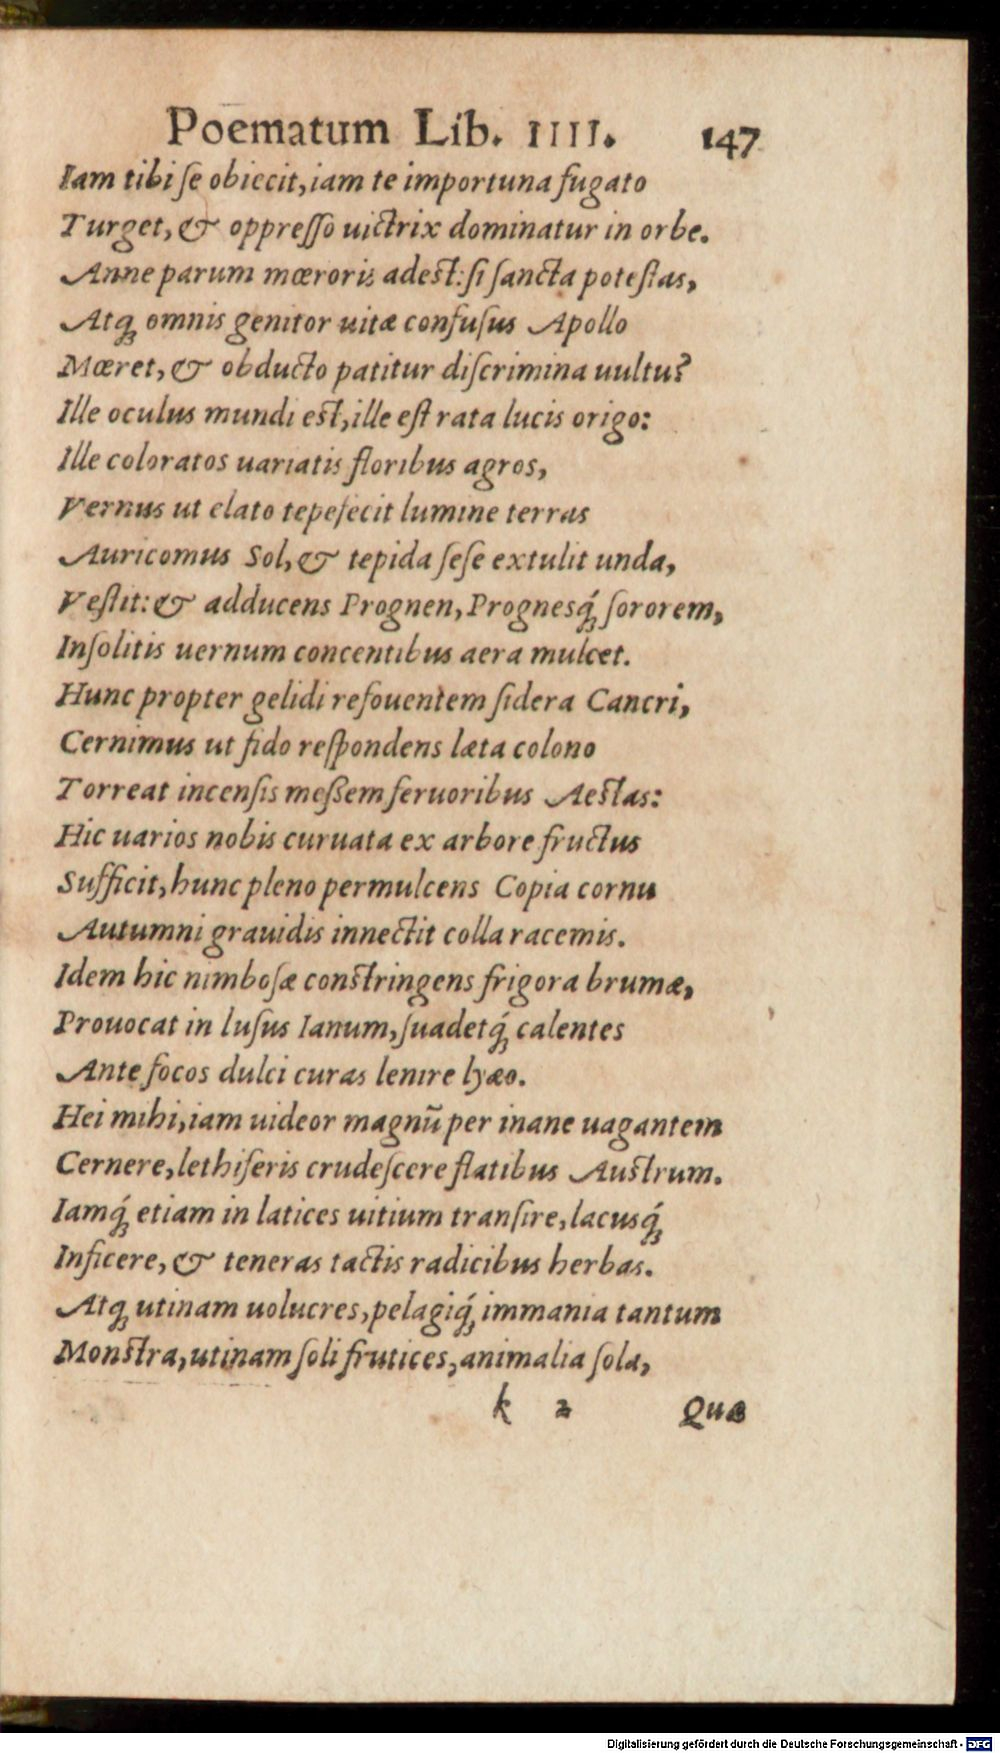 Poematum Lib. IIII. 147
Iam tibi se obiecit, iam te importuna fugato
Turget, & oppresso uictrix dominatur in orbe.
Anne parum mœroris adest: si sancta potestas,
Atq; omnis genitor uitæ confusus Apollo
Mœret, & obducto patitur discrimina uultu?
Ille oculus mundi est, ille est rata lucis origo:
Ille coloratos uariatis floribus agros,
Vernus ut elato tepefecit lumine terras
Auricomus Sol, & tepida sese extulit unda,
Vestit: & adducens Prognen, Prognesq́; sororem,
Insolitis uernum concentibus aera mulcet.
Hunc propter gelidi refouentem sidera Cancri,
Cernimus ut fido respondens læta colono
Torreat incensis meßem feruoribus Aestas:
Hic uarios nobis curuata ex arbore fructus
Sufficit, hunc pleno permulcens Copia cornu
Autumni grauidis innectit colla racemis.
Idem hic nimbosæ constringens frigora brumæ,
Prouocat in lusus Ianum, suadetq́; calentes
Ante focos dulci curas lenire lyæo.
Hei mihi, iam uideor magnū per inane uagantem
Cernere, lethiferis crudescere flatibus Austrum.
Iamq́; etiam in latices uitium transire, lacusq́;
Inficere, & teneras tactis radicibus herbas.
Atq; utinam uolucres, pelagiq́; immania tantum
Monstra, utinam soli frutices, animalia sola,
k 2 Quæ
Digitalisierung gefördert durch die Deutsche Forschungsgemeinschaft - DFG